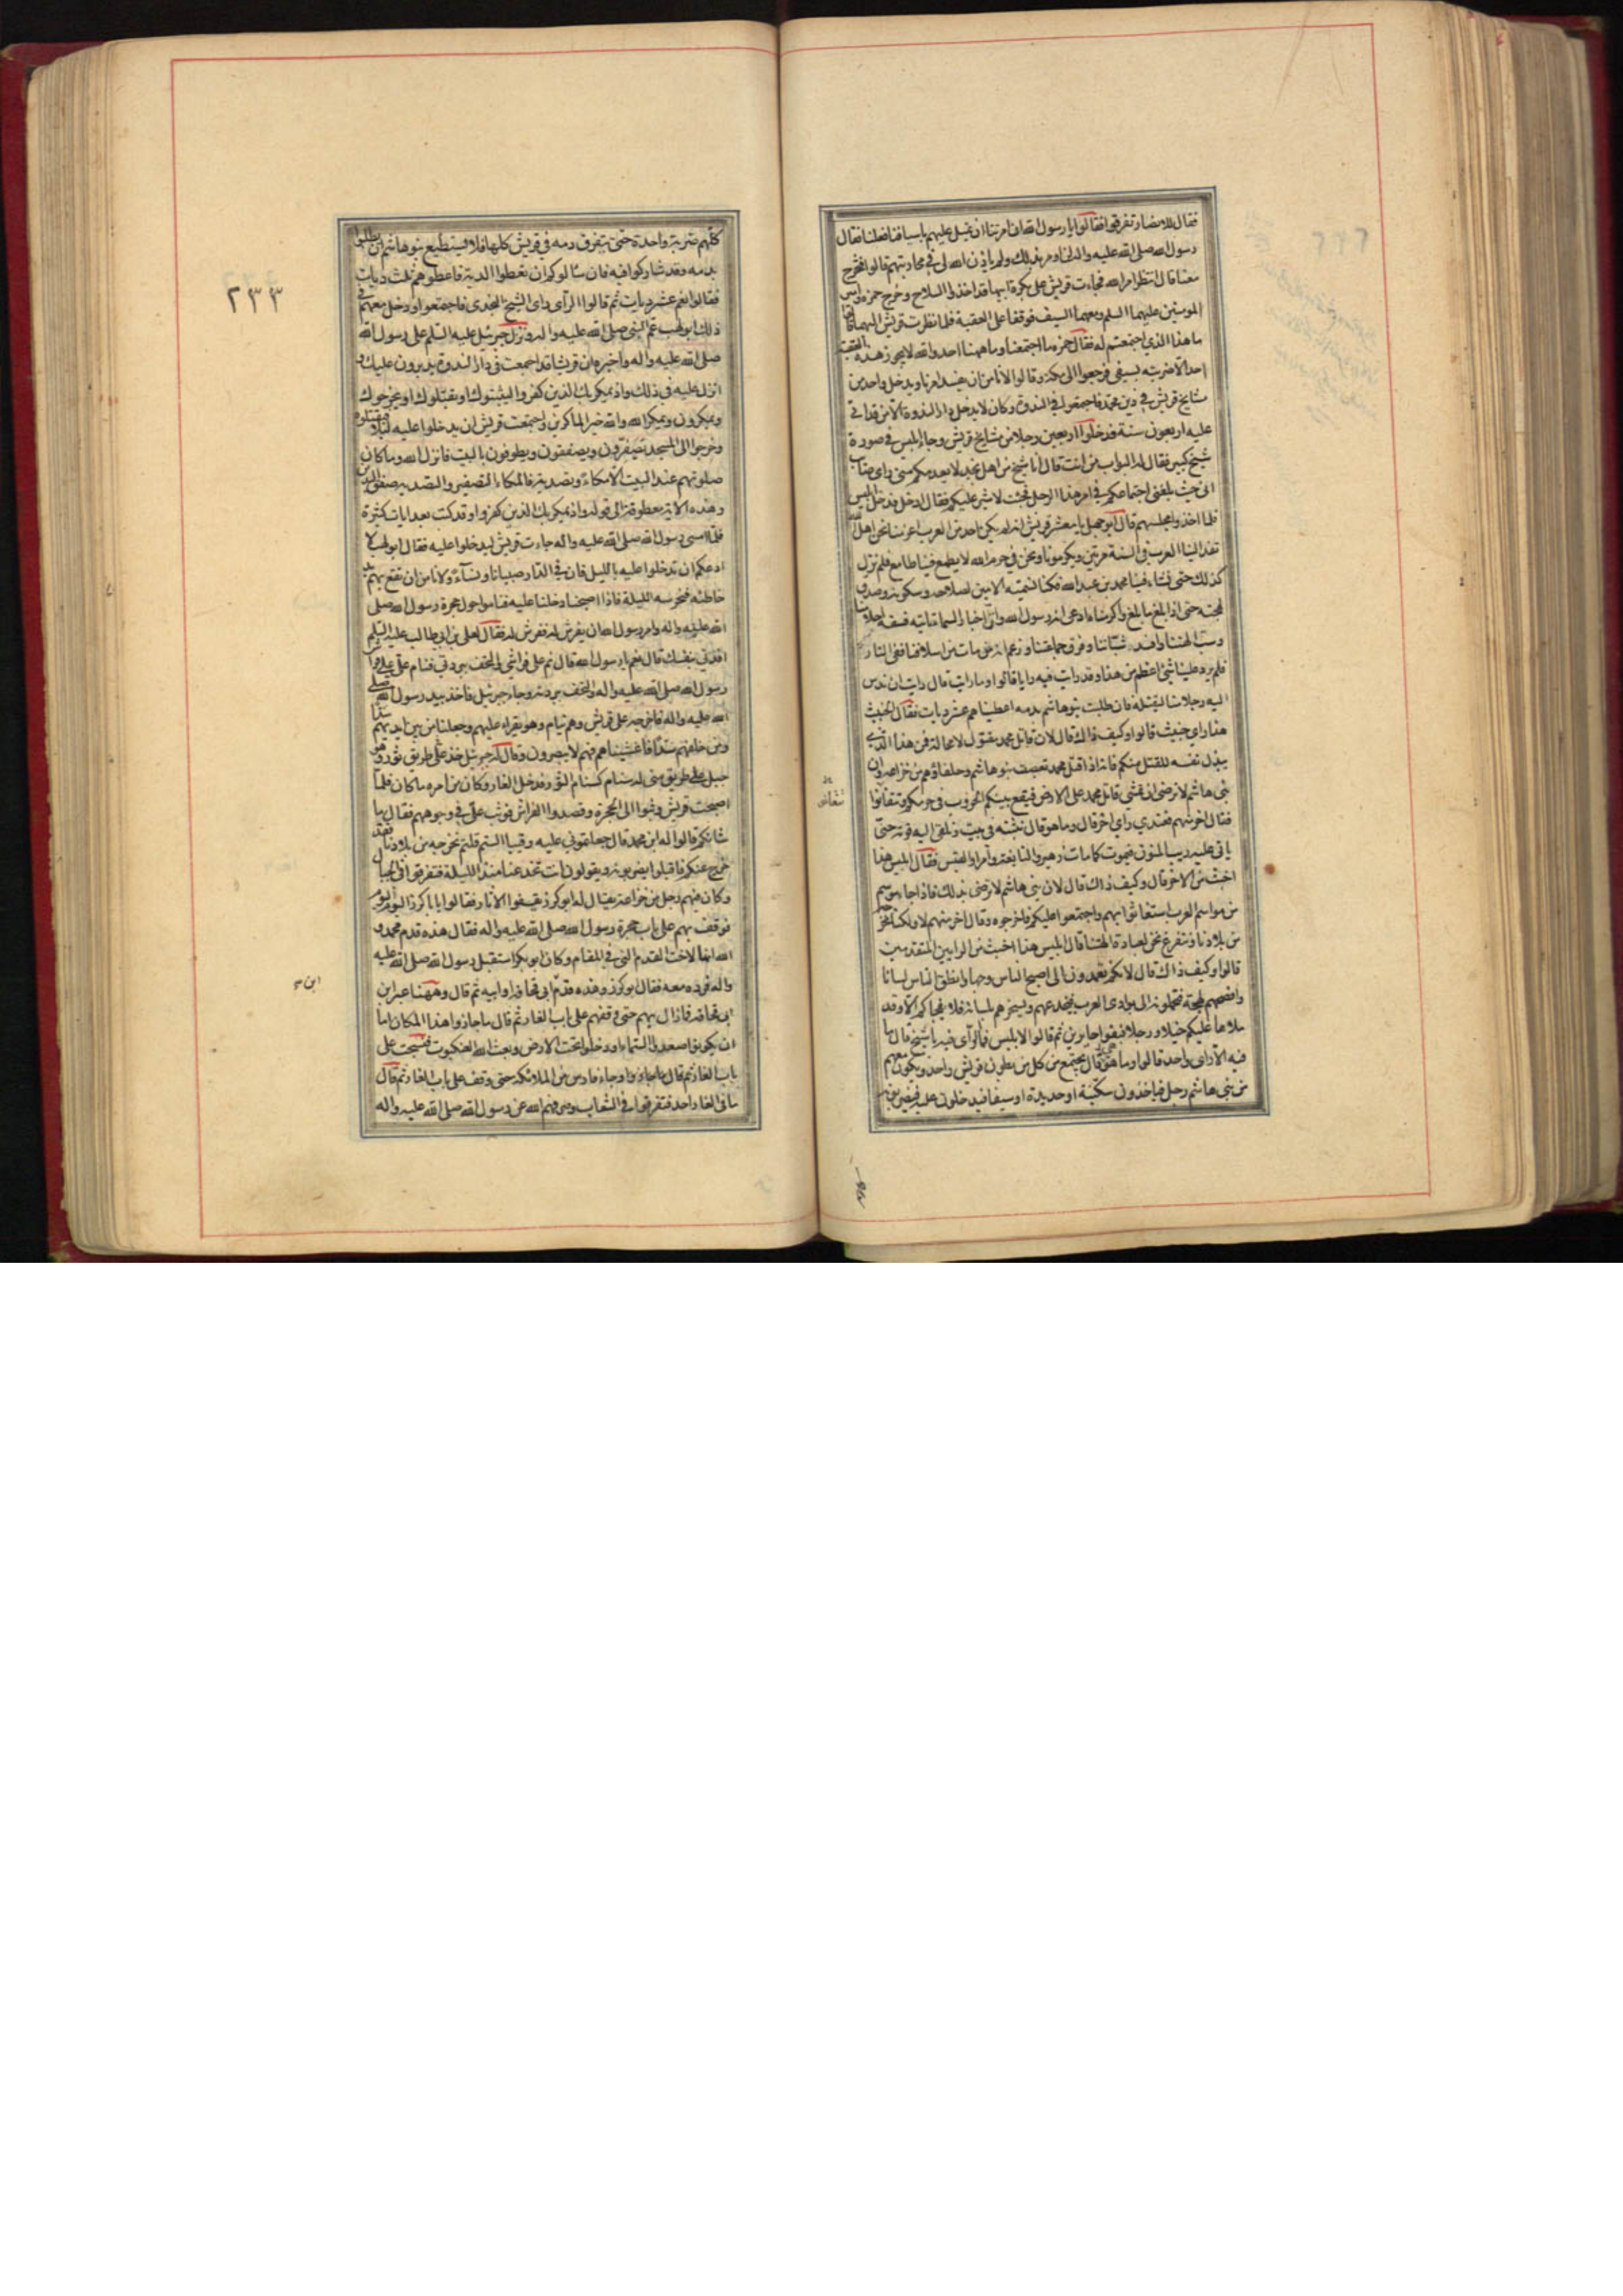 فقال للانصار تفرقوا فقالوا يا رسول الله ان امرتنا ان نميل عليهم باسيافنا فعلنا فقال
رسول الله صلى الله عليه واله لم اومر بذلك ولم ياذن الله لى فى محاربتهم قالوا فتخرج
معنا قال انتظر امر الله فجاءت قريش على بكرة ابيها قد اخذوا السلاح وخرج حمزه وامير
المومنين عليهما السلم ومعهما السيف فوقفا على العقبة فلما نظرت قريش اليهما قالوا
ما هذا الذي اجتمعتم له فقال حمزه ما اجتمعنا وما ههنا احد والله لا يجوز هذه العقبة
احد الا ضربته بسيفى فرجعوا الى مكة وقالوا لا نامن ان يفسد امرنا ويدخل واحد من
مشايخ قريش فى دين محمد فاجتمعوا فى الندوة وكان لا يدخل دار الندوة الا من قد اتى
عليه اربعون سنة فدخلوا اربعين رجلا من مشايخ قريش وجاء ابليس فى صورة
شيخ كبير فقال له البواب من انت قال انا شيخ من اهل نجد لا يعدمكم منى راى صائب
انى حيث بلغنى اجتماعكم فى امر هذا الرجل فجئت لاشير عليكم فقال ادخل فدخل ابليس
فلما اخذوا مجلسهم قال ابو جهل يا معشر قريش انه لم يكن احد من العرب اعز منا نحن اهل الله
تفد الينا العرب فى السنة مرتين ويكرموننا ونحن فى حرم الله لا يطمع فينا طامع فلم نزل
كذلك حتى نشاء فينا محمد بن عبد الله فكنا نسميه الامين لصلاحه وسكونه وصدق
لهجته حتى اذا بلغ ما بلغ واكرمناه ادعى انه رسول الله وان اخبار السماء تاتيه فسفه احلامنا
وسب الهتنا وافسد شبّاننا وفرق جماعتنا وزعم انه من مات من اسلافنا ففى النار
فلم يرد علينا شئ اعظم من هذا وقد رايت فيه رايا قالوا وما رايت قال رايت ان ندس
اليه رجلا منا ليقتله فان طلبت بنو هاشم بدمه اعطيناهم عشر ديات فقال الخبيث
هذا راى خبيث قالوا وكيف ذاك قال لان قاتل محمد مقتول لا محالة فمن هذا الذى
يبذل نفسه للقتل منكم فانه اذا قتل محمد تعصبت بنو هاشم وحلفاؤهم من خزاعة وان
بنى هاشم لا ترضى ان يمشى قاتل محمد على الارض فيقع بينكم الحروب فى حرمكم وتتفانوا
فقال اخر منهم فعندي راي اخر قال وما هو قال نثبته فى بيت ونلقى اليه قوته حتى
ياتى عليه ريب المنون فيموت كما مات زهير والنابغة وامراو القيس فقال ابليس هذا
اخبث من الاخر قال وكيف ذاك قال لان بنى هاشم لا ترضى بذلك فاذا جاء موسم
من مواسم العرب استغاثوا بهم واجتمعوا عليكم فاخرجوه وقال اخر منهم لا ولكنا نخرجه
من بلادنا ونتفرغ نحن لعبادة الهتنا قال ابليس هذا اخبث من الرايين المتقدمين
قالوا وكيف ذاك قال لانكم تعمدون الى اصبح الناس وجها وانطق الناس لسانا
وافصحهم لهجة فتحملونه الى بوادى العرب فيخدعهم ويسحرهم بلسانه فلا يفجاكم الا وقد
ملاها عليكم خيلا ورجلا فبقوا حايرين ثم قالوا لابليس فما الراى فيه يا شيخ قال ما
فيه الا راى واحد قالوا وما هو قال يجتمع من كل من بطون قريش واحد ويكون معهم
من بنى هاشم رجل فياخذون سكينة او حديدة او سيفا فيدخلون عليه فيضربونه
تتفانى
٢٣٣
كلهم ضربة واحدة حتى يتفرق دمه فى قريش كلها فلا يستطيع بنو هاشم ان يطلبوا
بدمه وقد شاركوا فيه فان سالوكم ان تعطوا الدية فاعطوهم ثلث ديات
فقالوا نعم عشر ديات ثم قالوا الرآى راى الشيخ النجدى فاجتمعوا ودخل معهم فى
ذلك ابو لهب عم النبى صلى الله عليه واله ونزل جبرئيل عليه السلم على رسول الله
صلى الله عليه واله واخبره ان قريشا قد اجتمعت فى دار الندوة يدبرون عليك و
انزل عليه فى ذلك واذ يمكر بك الذين كفروا ليثبتوك او يقتلوك او يخرجوك
ويمكرون ويمكر الله والله خير الماكرين واجتمعت قريش ان يدخلوا عليه ليلا فيقتلوه
وخرجوا الى المسجد يصفرون ويصفقون ويطوفون بالبيت فانزل الله وما كان
صلوتهم عند البيت الا مكاءً وتصدية فالمكاء التصفير والتصدية صفق اليدين
وهذه الاية معطوفة الى قوله واذ يمكر بك الذين كفروا وقد كتبت بعد ايات كثيرة
فلما امسى رسول الله صلى الله عليه واله جاءت قريش ليدخلوا عليه فقال ابو لهب لا
ادعكم ان تدخلوا عليه بالليل فان فى الدار صبيانا ونسآءً ولا نامن ان تقع بهم يد
خاطئه فنحرسه الليلة فاذا اصبحنا دخلنا عليه فناموا حول حجرة رسول الله صلى
الله عليه واله وامر رسول الله ان يفرش له ففرش له فقال لعلى بن ابى طالب عليه السلم
افدنى بنفسك قال نعم يا رسول الله قال نم على فراشى والتحف ببردتى فنام على على فراش
رسول الله صلى الله عليه واله والتحف ببردته وجاء جبرئيل فاخذ بيد رسول الله صلى
الله عليه واله فاخرجه على قريش وهم نيام وهو يقراء عليهم وجعلنا من بين ايديهم سدا
ومن خلفهم سدّا فاغشيناهم فهم لا يبصرون وقال له جبرئيل خذ على طريق ثور وهو
جبل على طريق منى له سنام كسنام الثور فدخل الغار وكان من امره ما كان فلما
اصبحت قريش وثبوا الى الحجرة وقصدوا الفراش فوثب على فى وجوههم فقال ما
شانكم قالوا له اين محمد قال جعلتمونى عليه رقيبا الستم قلتم نخرجه من بلادنا فقد
خرج عنكم فاقبلوا يضربونه ويقولون انت تخدعنا منذ الليلة فتفرقوا فى الجبال
وكان فيهم رجل من خزاعة يقال له ابو كرز يقفوا الاثار فقالوا يابا كرز اليوم اليوم
فوقف بهم على باب حجرة رسول الله صلى الله عليه واله فقال هذه قدم محمد و
الله انها لاخت القدم التى فى المقام وكان ابو بكر استقبل رسول الله صلى الله عليه
واله فرده معه فقال ابو كرز وهذه قدم ابى قحافة او ابيه ثم قال وههنا عبر ابن
ابى قحافة فما زال بهم حتى وقفهم على باب الغار ثم قال ما جازوا هذا المكان اما
ان يكونوا صعدوا السماء او دخلوا تحت الارض وبعث الله العنكبوت فنسجت على
باب الغار ثم قال وجاء فارس من الملائكة حتى وقف على باب الغار ثم قال
ما فى الغار احد فتفرقوا فى الشعاب وصرفهم الله عن رسول الله صلى الله عليه واله
ابن